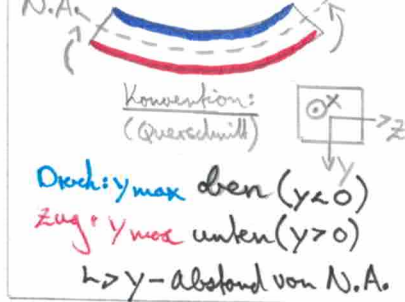 N.A.
Konvention:
(Querschnitt)
x
z
y
Druck: ymax oben (y<0)
Zug: ymax unten (y>0)
↳ y-Abstand von N.A.